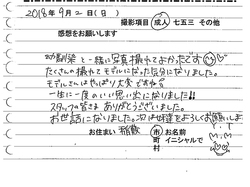 2018年 9月 2日(日) 撮影項目 成人 七五三 その他
感想をお願いします
と一緒に写真撮れてよかったです
たくさんの撮れてモデルになった気分になりました。
モデルさんはやっぱり大変ですね
一生に一度のいい思い出になりました!!
スタッフの皆さま ありがとうございました。
お世話になりました。次は を よろしくお願いします
お住まい 稲敷 市 お名前
町 イニシャルで Y.I
村